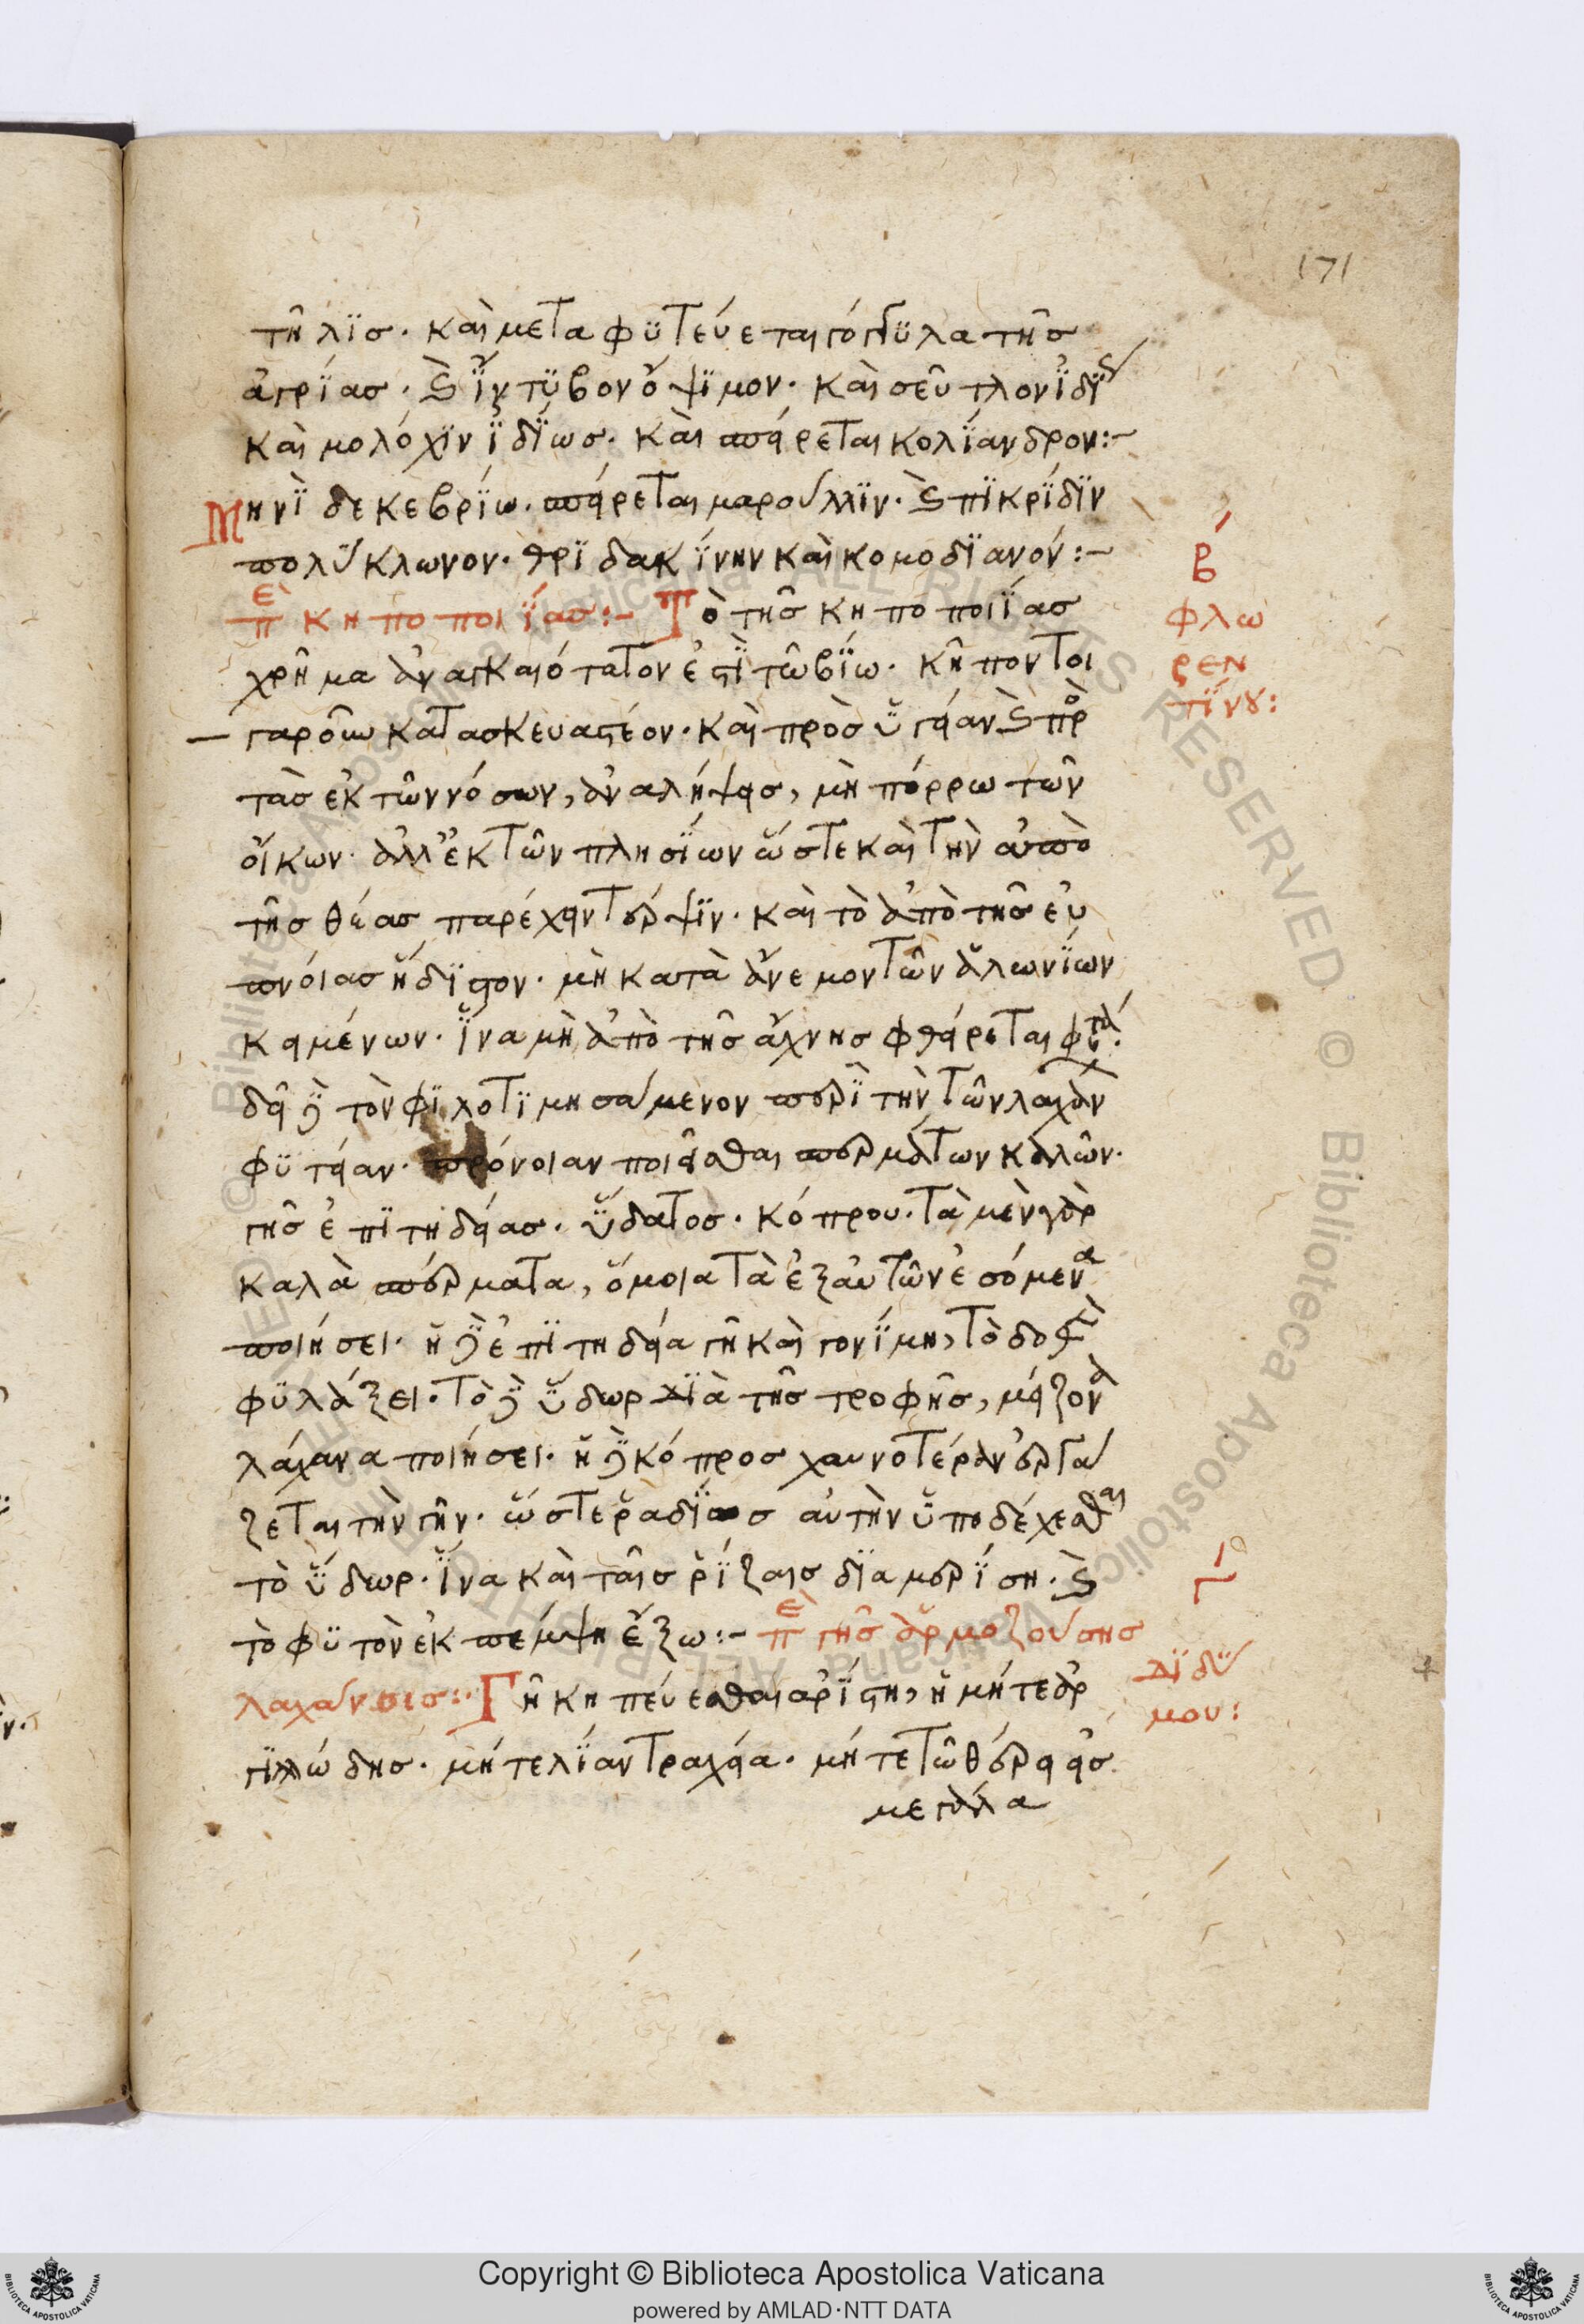 171
τῆλϊσ· καὶ μεταφϋτεύεται γόγγϋλα τῆσ
ἀγρίασ· καὶ ἴντϋβον ὄψϊμον· καὶ σεῦτλον ϊδϊ
καὶ μολόχϊν ϊδϊωσ· καὶ σπείρεται κολϊανδρον:–
Μηνὶ δεκεβρϊω· σπείρεται μαρούλλϊν· καὶ πϊκρϊδϊν
πολύκλωνον· θρϊδακϊνην καὶ κομοδϊανόν:–
πε κηποποιϊασ:– Τὸ τῆσ κηποποιϊασ
χρῆμα ἀναγκαιότατον ἐστὶ τῶ βϊω· κῆπον τοι
γαροῦν κατασκευαστέον· καὶ πρὸσ ὑγείαν καὶ πρὸ
τὰσ ἐκ τῶν νόσων, ἀναλήψεισ, μὴ πόρρω τῶν
οἴκων· ἀλλ' ἐκ τῶν πλησϊων ὥστε καὶ τὴν ἀπὸ
τῆσ θέασ παρέχειν τέρψϊν· καὶ τὸ ἀπὸ τῆσ εὐ
πνόιασ ἥδϊστον· μὴ κατὰ ἄνεμον τῶν ἁλωνϊων
κειμένων· ἵνα μὴ ἀπὸ τῆσ ἄχνησ φθείρεται φυτά·
δεῖ δὲ τὸν φϊλοτϊμησάμενον περὶ τὴν τῶν λαχάν
φϋτείαν· πρόνοιαν ποιεῖσθαι σπερμάτων καλῶν·
γῆσ ἐπϊτηδείασ· ὕδατοσ· κόπρου· τὰ μὲν γὰρ
καλὰ σπέρματα, ὅμοια τὰ ἐξ αὐτῶν ἐσόμενα
ποιήσει· ἡ δὲ ἐπϊτηδεία γῆ καὶ γονϊμη, τὸ δοθὲν
φϋλάξει· τὸ δὲ ὕδωρ δϊὰ τῆσ τροφῆσ, μείζονα
λάχανα ποιήσει· ἡ δὲ κόπροσ χαυνοτέραν ἐργά
ζεται τὴν γῆν· ὥστε ῥαδϊωσ αὐτὴν ὑποδέχεσθαι
τὸ ὕδωρ· ἵνα καὶ ταῖσ ῥϊζαισ δϊαμερϊση· καὶ
τὸ φϋτὸν ἐκπέμψη ἔξω:– πε γῆσ ἁρμοζούσησ
λαχάνοισ:· Γῆ κηπεύεσθαι ἀρϊστη, ἡ μήτε ἀρ
γϊλώδησ· μήτε λϊαν τραχεία· μήτε τῶ θέρει εἰσ
μεγάλα
β
φλω
ρεν
τϊνου:
γ
Δϊδύ
μου: